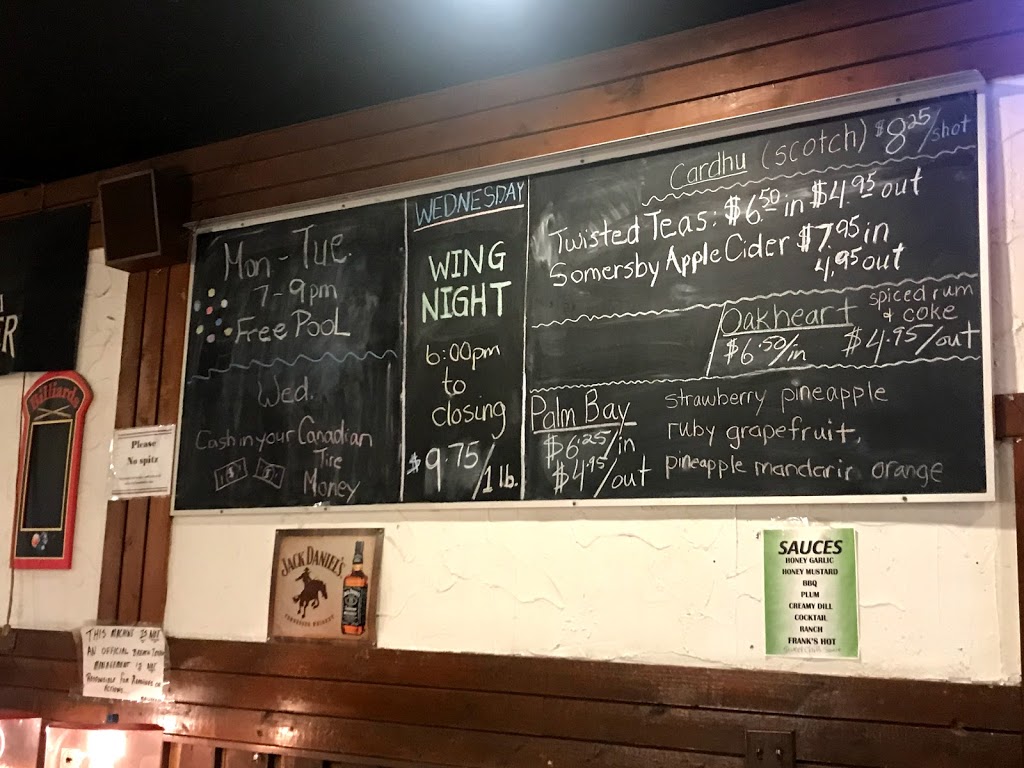 Mon - Tue.
7 - 9pm
Free Pool
Wed.
Cash in your Canadian
Tire
Money
WEDNESDAY
WING
NIGHT
6:00pm
to
closing
$9.75/1 lb.
Cardhu (scotch) $8.25/shot
Twisted Teas: $6.50 in $4.95 out
Somersby Apple Cider $7.95 in
4.95 out
Oakheart spiced rum
& coke
$6.50/in $4.95/out
Palm Bay
$6.25/in
$4.95/out
strawberry pineapple
ruby grapefruit,
pineapple mandarin orange
ER
Billiards
Please
No spitz
JACK DANIEL'S
TENNESSEE WHISKEY
SAUCES
HONEY GARLIC
HONEY MUSTARD
BBQ
PLUM
CREAMY DILL
COCKTAIL
RANCH
FRANK'S HOT
THIS MACHINE IS NOT
AN OFFICIAL
MANAGEMENT IS NOT
RESPONSIBLE FOR